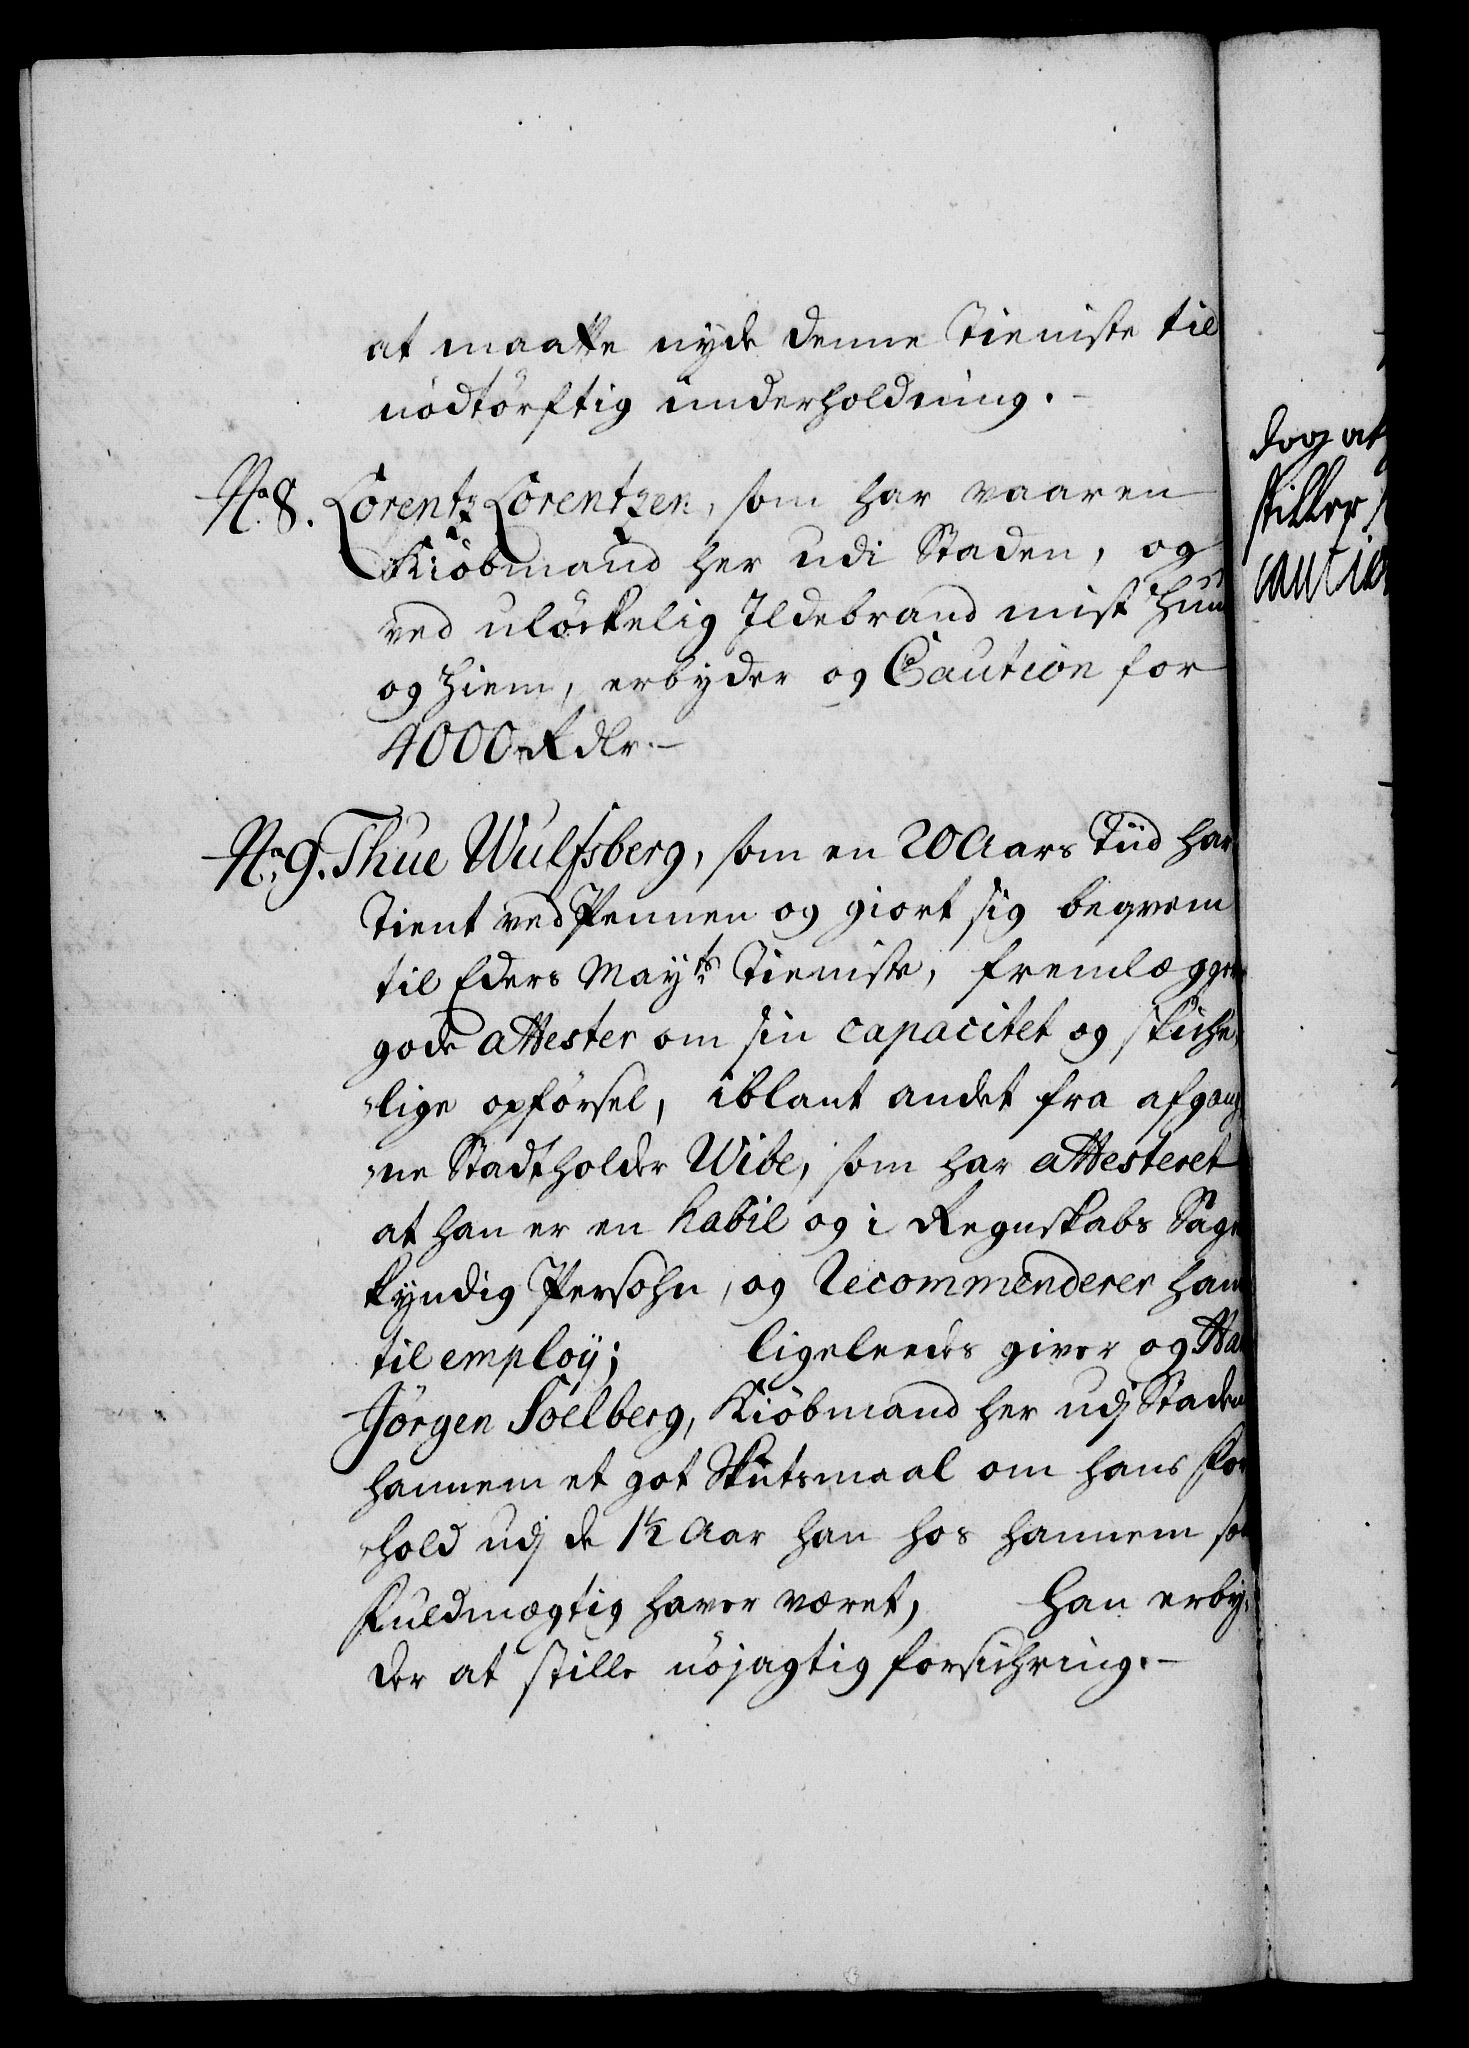 at maatte nyde denne Tieniste til
nödtörftig underholdning. –
No. 8. Lorentz Lorentzen, som har vaaren
Kiöbmand her udi Staden, og
ved ulöckelig Ildebrand mist Huus
og Hiem, erbyder og Caution for
4000 Rdlr. –
No. 9. Thue Wulfsberg, som en 20 Aars Tiid har
Tient ved Pennen og giort sig beqvem
til Eders Mayts Tieniste, fremlægger
gode attester om sin capacitet og skicke,
lige opförsel, iblant andet fra afgang,
ne Stadtholder Wibe, som har attesteret
at han er en habil og i Regnskabs Sager
kyndig Persohn, og Recommenderer ham
til employ; ligeleedes giver og
Jörgen Soelberg, Kiöbmand her udj Staden
hannem et got Skutsmaal om hans For
hold udj de 1½ Aar han hos hannem som
Fuldmægtig haver været, Han erby,
der at stille nöjagtig forsichring. –
dog at
stiller
caution